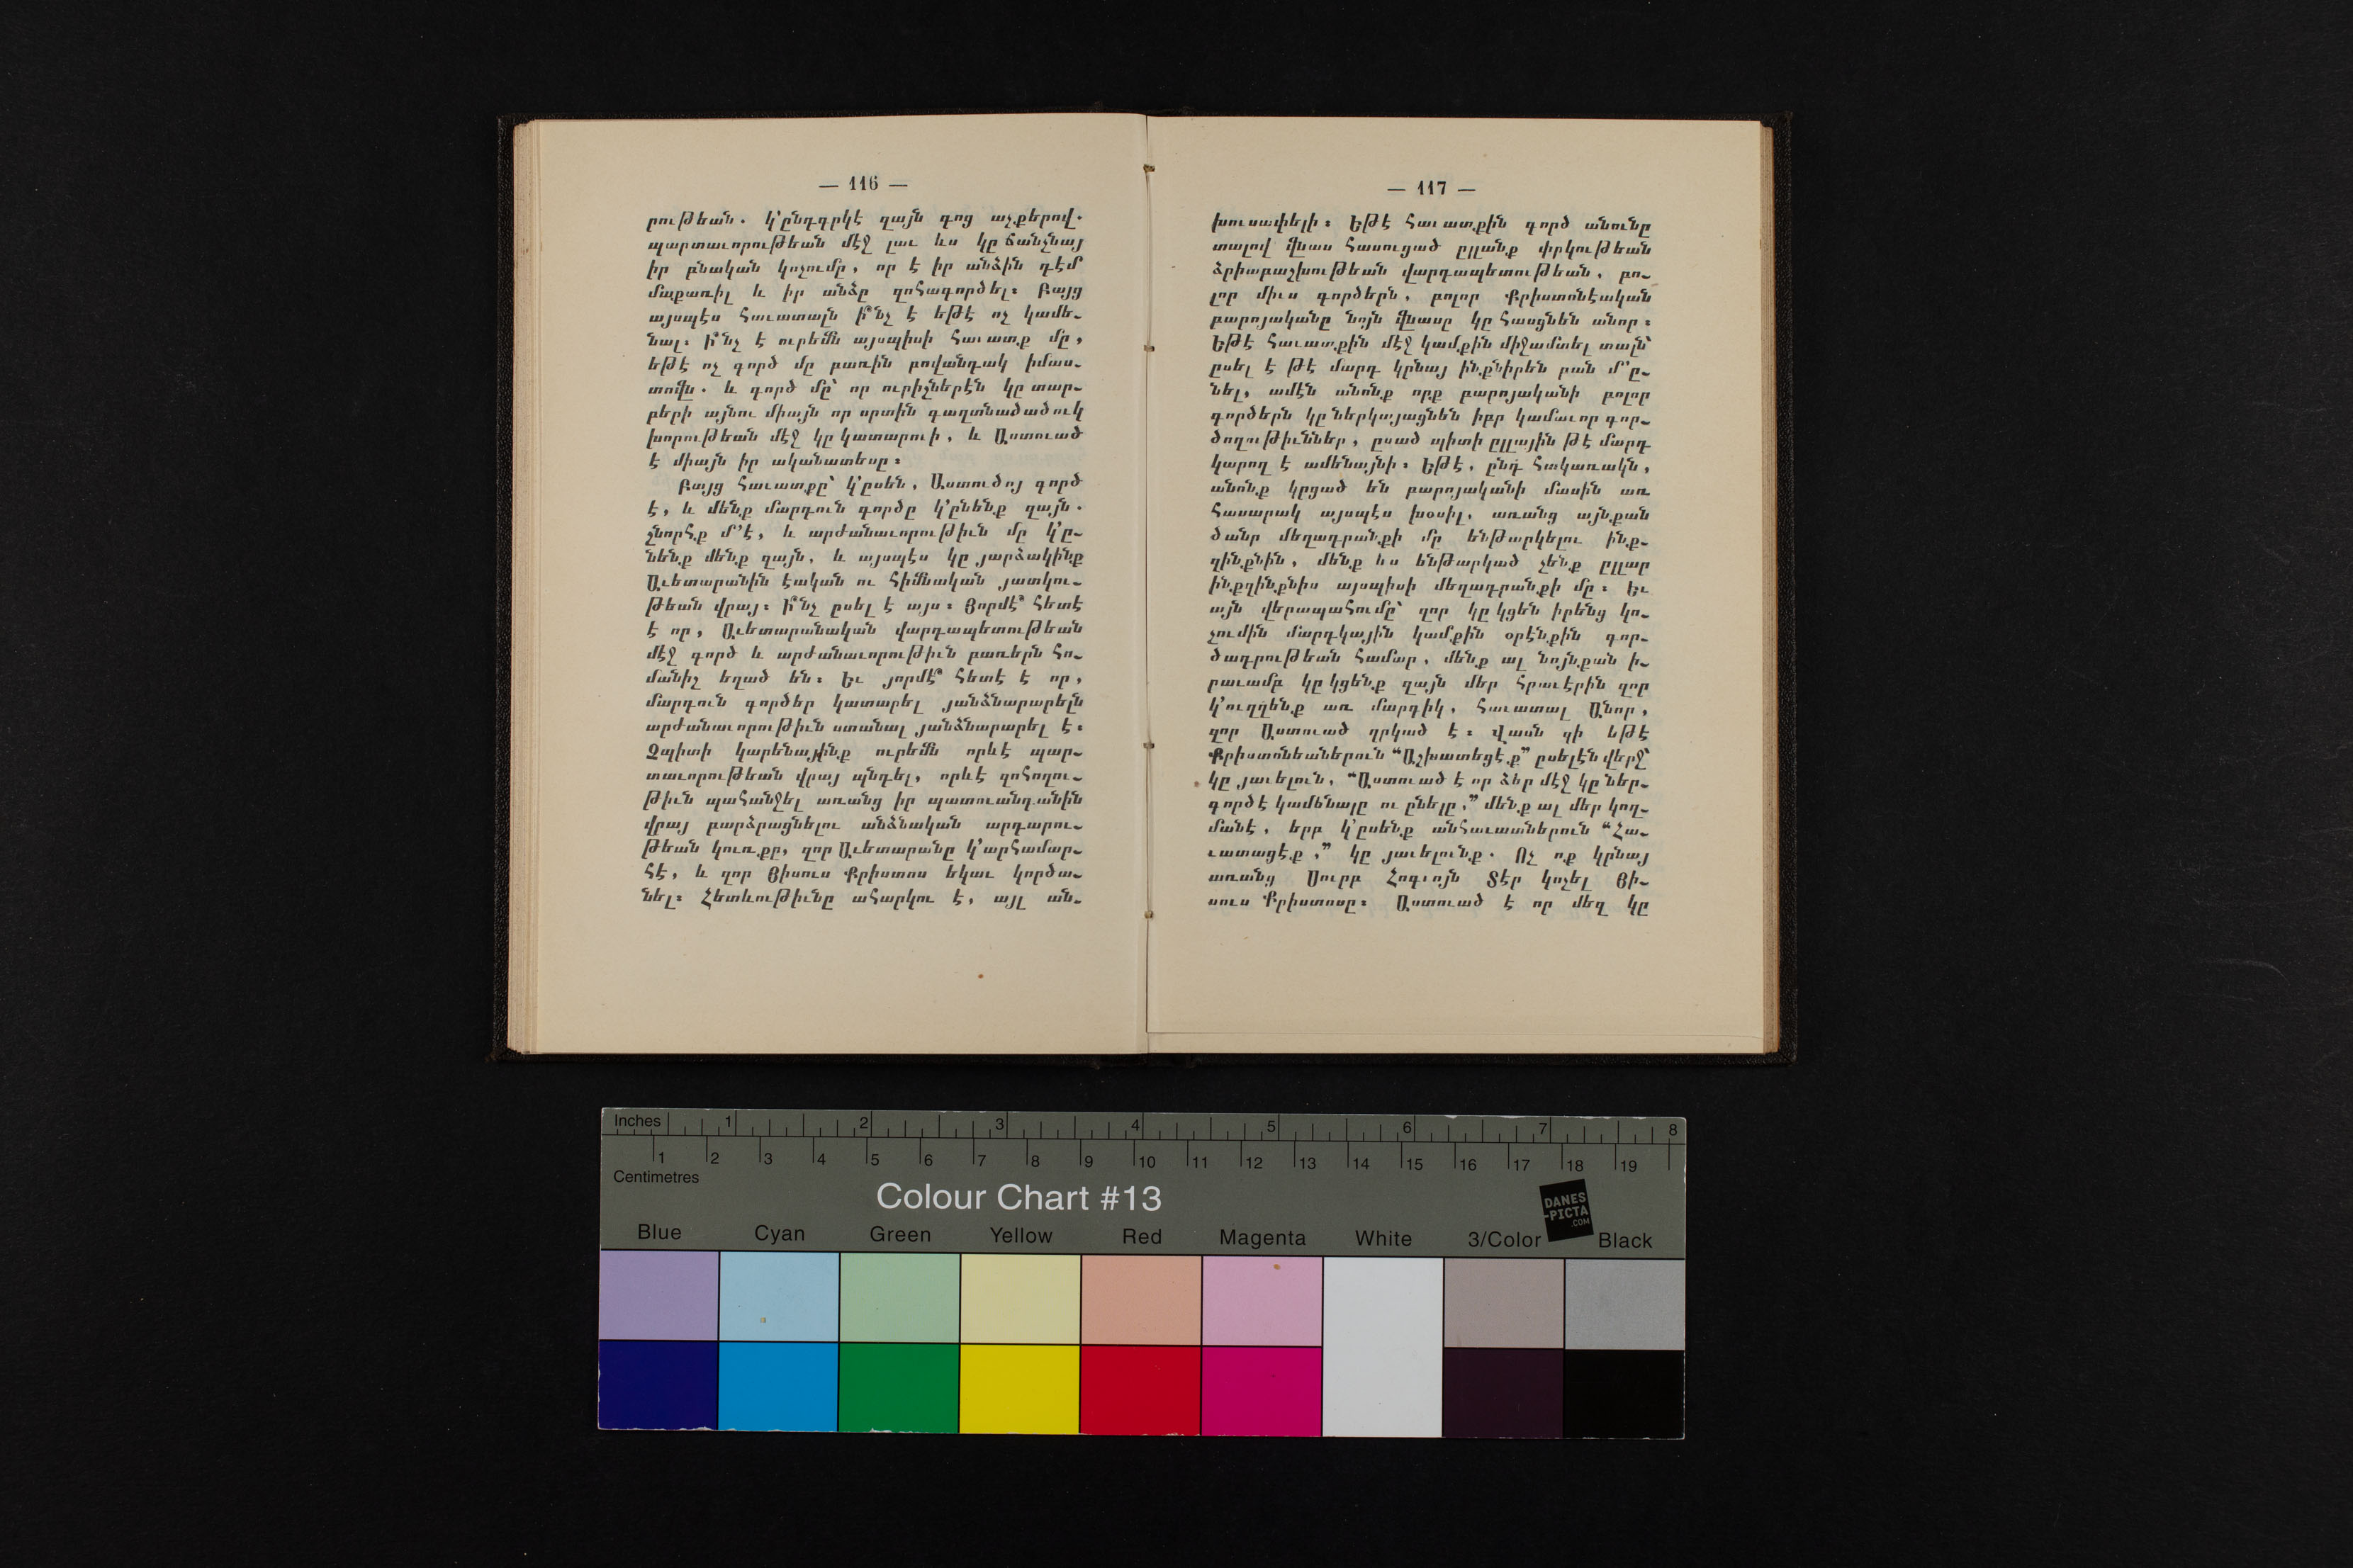 — 116 —
րութեան. կ՚ընդգրկէ զայն գոց աչքերով.
պարտաւորութեան մէջ լաւ ևս կը ճանչնայ
իր բնական կոչումը, որ է իր անձին դէմ
մաքառիլ և իր անձը զոհագործել։ Բայց
այսպէս հաւատալն ի՞նչ է եթէ ոչ կամե-
նալ։ Ի՞նչ է ուրեմն այսպիսի հաւատք մը,
եթէ ոչ գործ մը բառին բովանդակ իմաս-
տովն. և գործ մը՝ որ ուրիշներէն կը տար-
բերի այնու միայն որ սրտին գաղտնածածուկ
խորութեան մէջ կը կատարուի, և Աստուած
է միայն իր ականատեսը։
Բայց հաւատքը՝ կ՚ըսեն, Աստուծոյ գործ
է, և մենք մարդուն գործը կ՚ընենք զայն.
շնորհք մ՚է, և արժանաւորութիւն մը կ՚ը-
նենք մենք զայն, և այսպէս կը յարձակինք
Աւետարանին էական ու հիմնական յատկու-
թեան վրայ։ Ի՞նչ ըսել է այս։ Յորմէ՞ հետէ
է որ, Աւետարանական վարդապետութեան
մէջ գործ և արժանաւորութիւն բառերն հո-
մանիշ եղած են։ Եւ յորմէ՞ հետէ է որ,
մարդուն գործեր կատարել յանձնարարելն
արժանաւորութիւն ստանալ յանձնարարել է։
Չպիտի կարենայինք ուրեմն որևէ պար-
տաւորութեան վրայ պնդել, որևէ զոհողու-
թիւն պահանջել առանց իր պատուանդանին
վրայ բարձրացնելու անձնական արդարու-
թեան կուռքը, զոր Աւետարանը կ՚արհամար-
հէ, և զոր Յիսուս Քրիստոս եկաւ կործա-
նել։ Հետևութիւնը ահարկու է, այլ ան-
— 117 —
խուսափելի։ Եթէ հաւատքին գործ անունը
տալով վնաս հասուցած ըլլանք փրկութեան
ձրիաբաշխութեան վարդապետութեան, բո-
լոր միւս գործերն, բոլոր Քրիստոնէական
բարոյականը նոյն վնասը կը հասցնեն անոր։
Եթէ հաւատքին մէջ կամքին միջամտել տալն՝
ըսել է թէ մարդ կրնայ ինքնիրեն բան մ՚ը-
նել, ամէն անոնք որք բարոյականի բոլոր
գործերն կը ներկայացնեն իբր կամաւոր գոր-
ծողութիւններ, ըսած պիտի ըլլային թէ մարդ
կարող է ամենայնի։ Եթէ, ընդ հակառակն,
անոնք կրցած են բարոյականի մասին առ
հասարակ այսպէս խօսիլ, առանց այնքան
ծանր մեղադրանքի մը ենթարկելու ինք-
զինքնին, մենք ևս ենթարկած չենք ըլլար
ինքզինքնիս այսպիսի մեղադրանքի մը։ Եւ
այն վերապահումը՝ զոր կը կցեն իրենց կո-
չումին մարդկային կամքին օրէնքին գոր-
ծադրութեան համար, մենք ալ նոյնքան ի-
րաւամբ կը կցենք զայն մեր հրաւէրին զոր
կ՚ուղղենք առ մարդիկ, հաւատալ Անոր,
զոր Աստուած ղրկած է։ Վասն զի եթէ
Քրիստոնեաներուն “Աշխատեցէք” ըսելէն վերջ՝
կը յաւելուն, “Աստուած է որ ձեր մէջ կը ներ-
գործէ կամենալը ու ընելը,” մենք ալ մեր կող-
մանէ, երբ կ՚ըսենք անհաւատներուն “Հա-
ւատացէք,” կը յաւելունք. Ոչ ոք կրնայ
առանց Սուրբ Հոգւոյն Տէր կոչել Յի-
սուս Քրիստոսը։ Աստուած է որ մեղ կը
Inches 1 2 3 4 5 6 7 8
1 2 3 4 5 6 7 8 9 10 11 12 13 14 15 16 17 18 19
Centimetres
Colour Chart #13
DANES
-PICTA
.COM
Blue Cyan Green Yellow Red Magenta White 3/Color Black